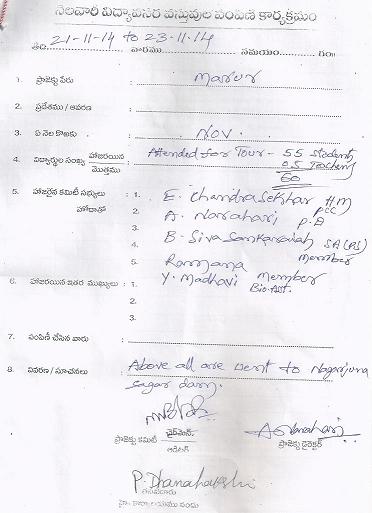 నెలవారీ విద్యావసర వస్తువుల పంపిణీ కార్యక్రమం
తేది: 21-11-14 to 23-11-14 వారము సమయం గం॥
1. ప్రాజెక్టు పేరు : Marur
2. ప్రదేశము / ఆవరణ :
3. ఏ నెల కొఱకు : Nov.
4. విద్యార్థుల సంఖ్య హాజరయిన / మొత్తము : Attended for Tour - 55 students
05 Teachers
60
5. హాజరైన కమిటీ సభ్యులు : 1. E. Chandra Sekhar HM
హోదాతో 2. A. Narahari PCC P.D
3.
4. B. Siva Sankaraiah SA (PS)
5. Ramana member
6. హాజరయిన ఇతర ముఖ్యులు : 1. Y. Madhavi member
2. Bio. Ast.
3.
7. పంపిణీ చేసిన వారు :
8. వివరణ / సూచనలు : Above all are went to Nagarjuna
sagar dam.
ప్రాజెక్టు కమిటీ చైర్మెన్. / ఆడిటర్
A Narahari
ప్రాజెక్టు డైరెక్టర్
P. Dhanalakshmi